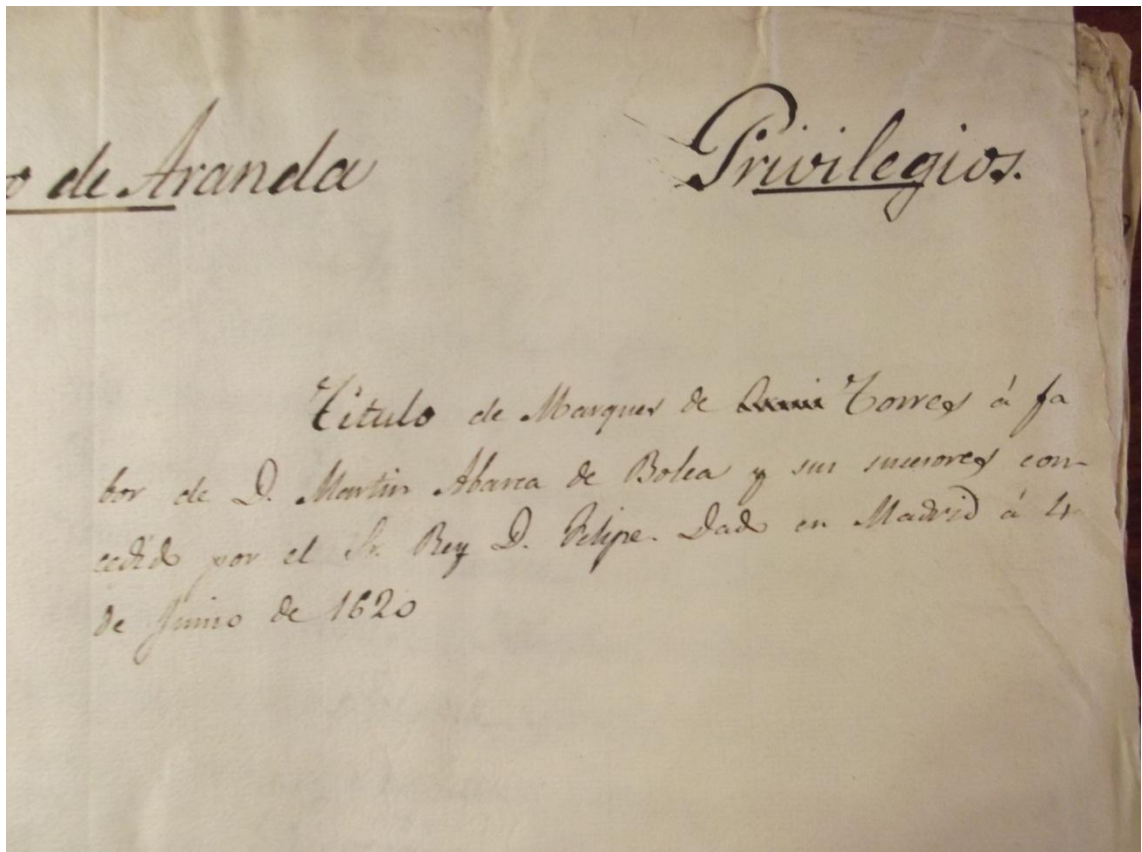 o de Aranda Privilegios.
Titulo de Marques de Torres á fa
bor de D. Martin Abarca de Bolea y sus sucesores con-
cedido por el Sr. Rey D. Felipe. Dado en Madrid á 4
de Junio de 1620